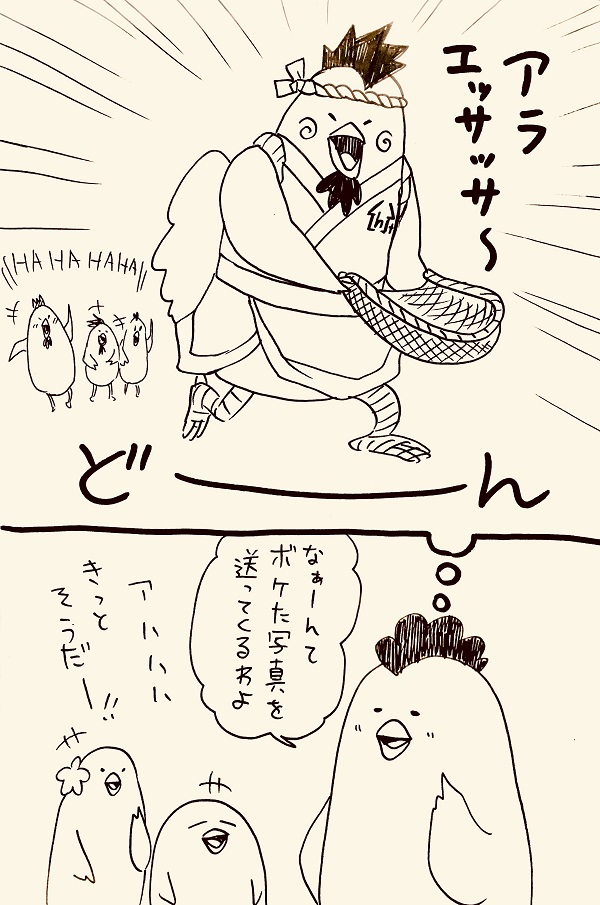 アラ
エッサッサ〜
HA HA HAHA
どーん
なぁーんて
ボケた写真を
送ってくるわよ
アハハハ
きっと
そうだー!!